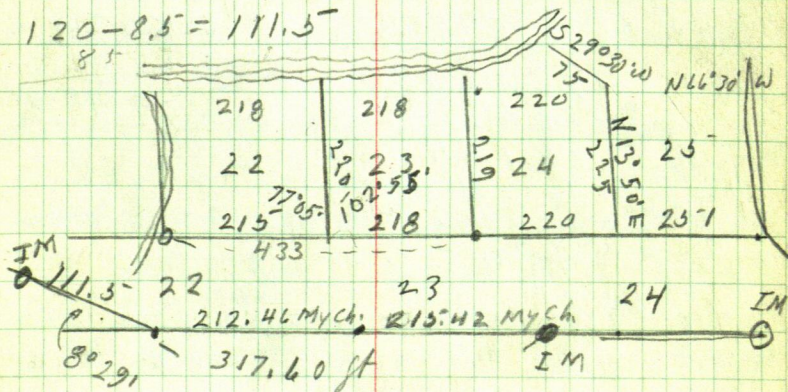 120 - 8.5 = 111.5
85
S 29° 30' W
75
N 66° 30' W
218 218 220
22 23 24 25
220
219
N 13° 50' E
225
77° 05' 102° 55'
215 218 220 251
433
IM
111.5 22 23 24
IM
212.46 My Ch. 215.42 My Ch.
8° 29'
317.60 ft
IM